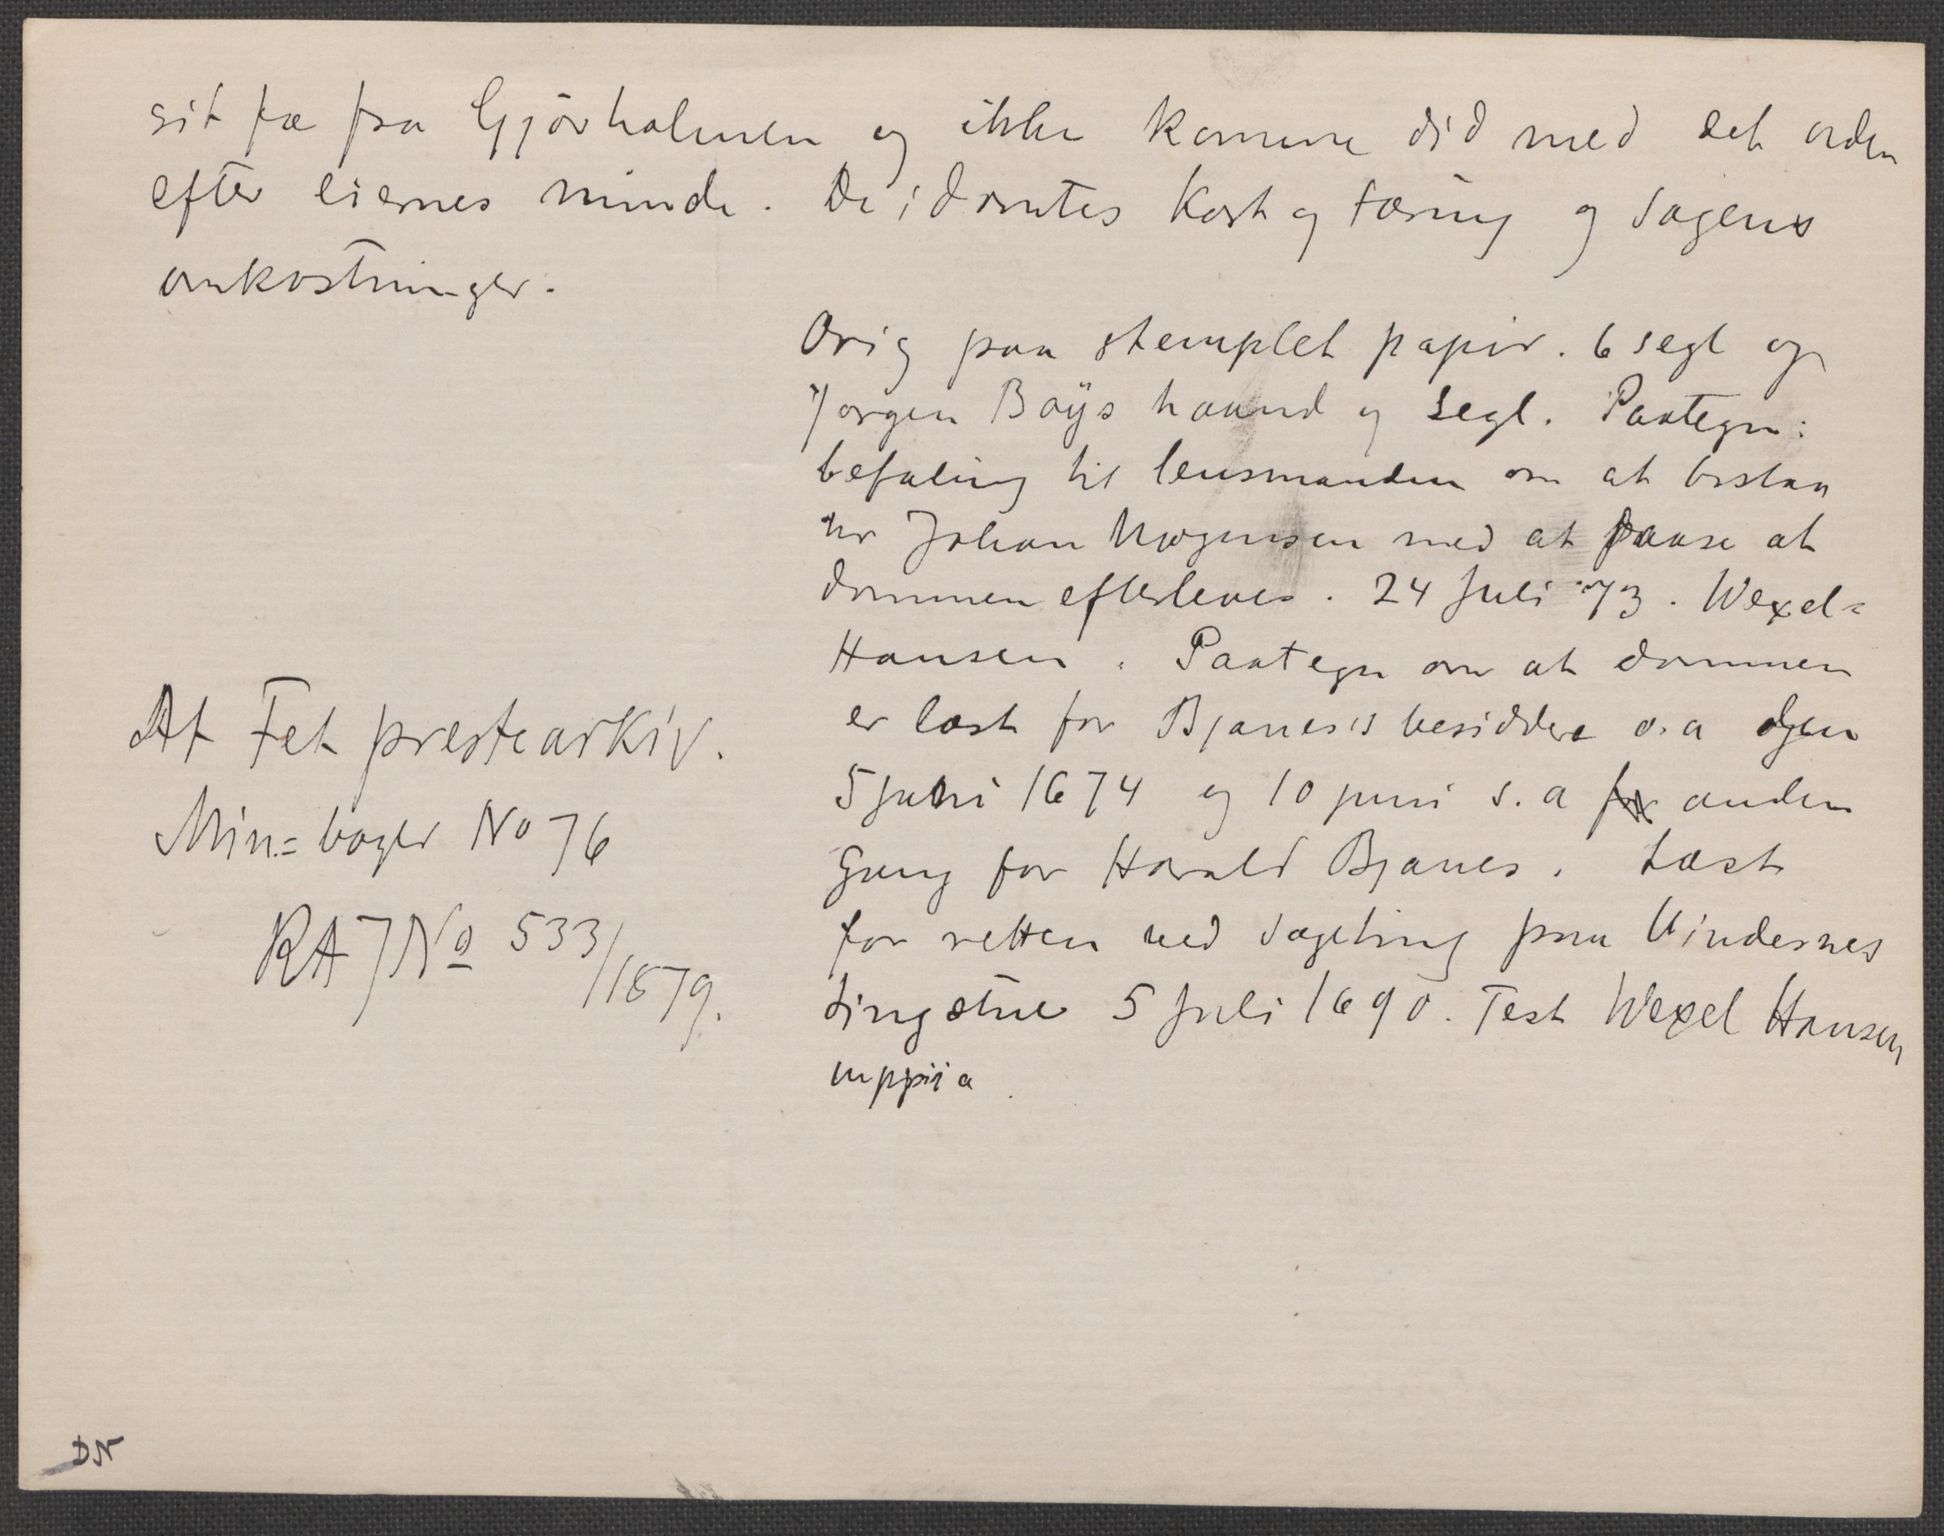 sit fæ fra Gjörholmen og ikke komme did med det uden
efter eiernes minde. De idømtes Kost og tæring og sagens
omkostninger.
Orig paa stemplet papir. 6 segl og
Jørgen Bøÿs haand og segl. Paategn:
befaling til lensmanden om at bistaa
hr Johan Mogensen med at paase at
dommen efterleves. 24 Juli 73. Wexel=
Hansen. Paategn om at dommen
er læst for Bjanes's besiddere o.a den
5 juni 1674 og 10 juni s. a anden
Gang for Harald Bjanes. Læst
for retten ved Sageting paa Vindernes
tingstue 5 Juli 1690. Test Wexel Hansen
mppiia
Af Fet prestearkiv.
Min.= bøger No 76
RA J No 533/1879.
DN